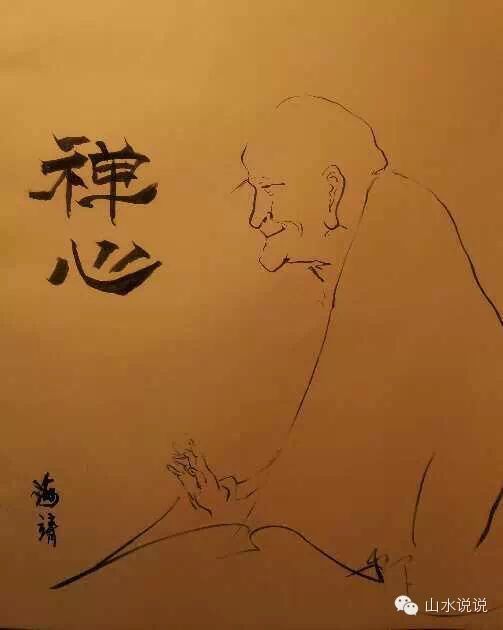 禅心
海靖
山水说说